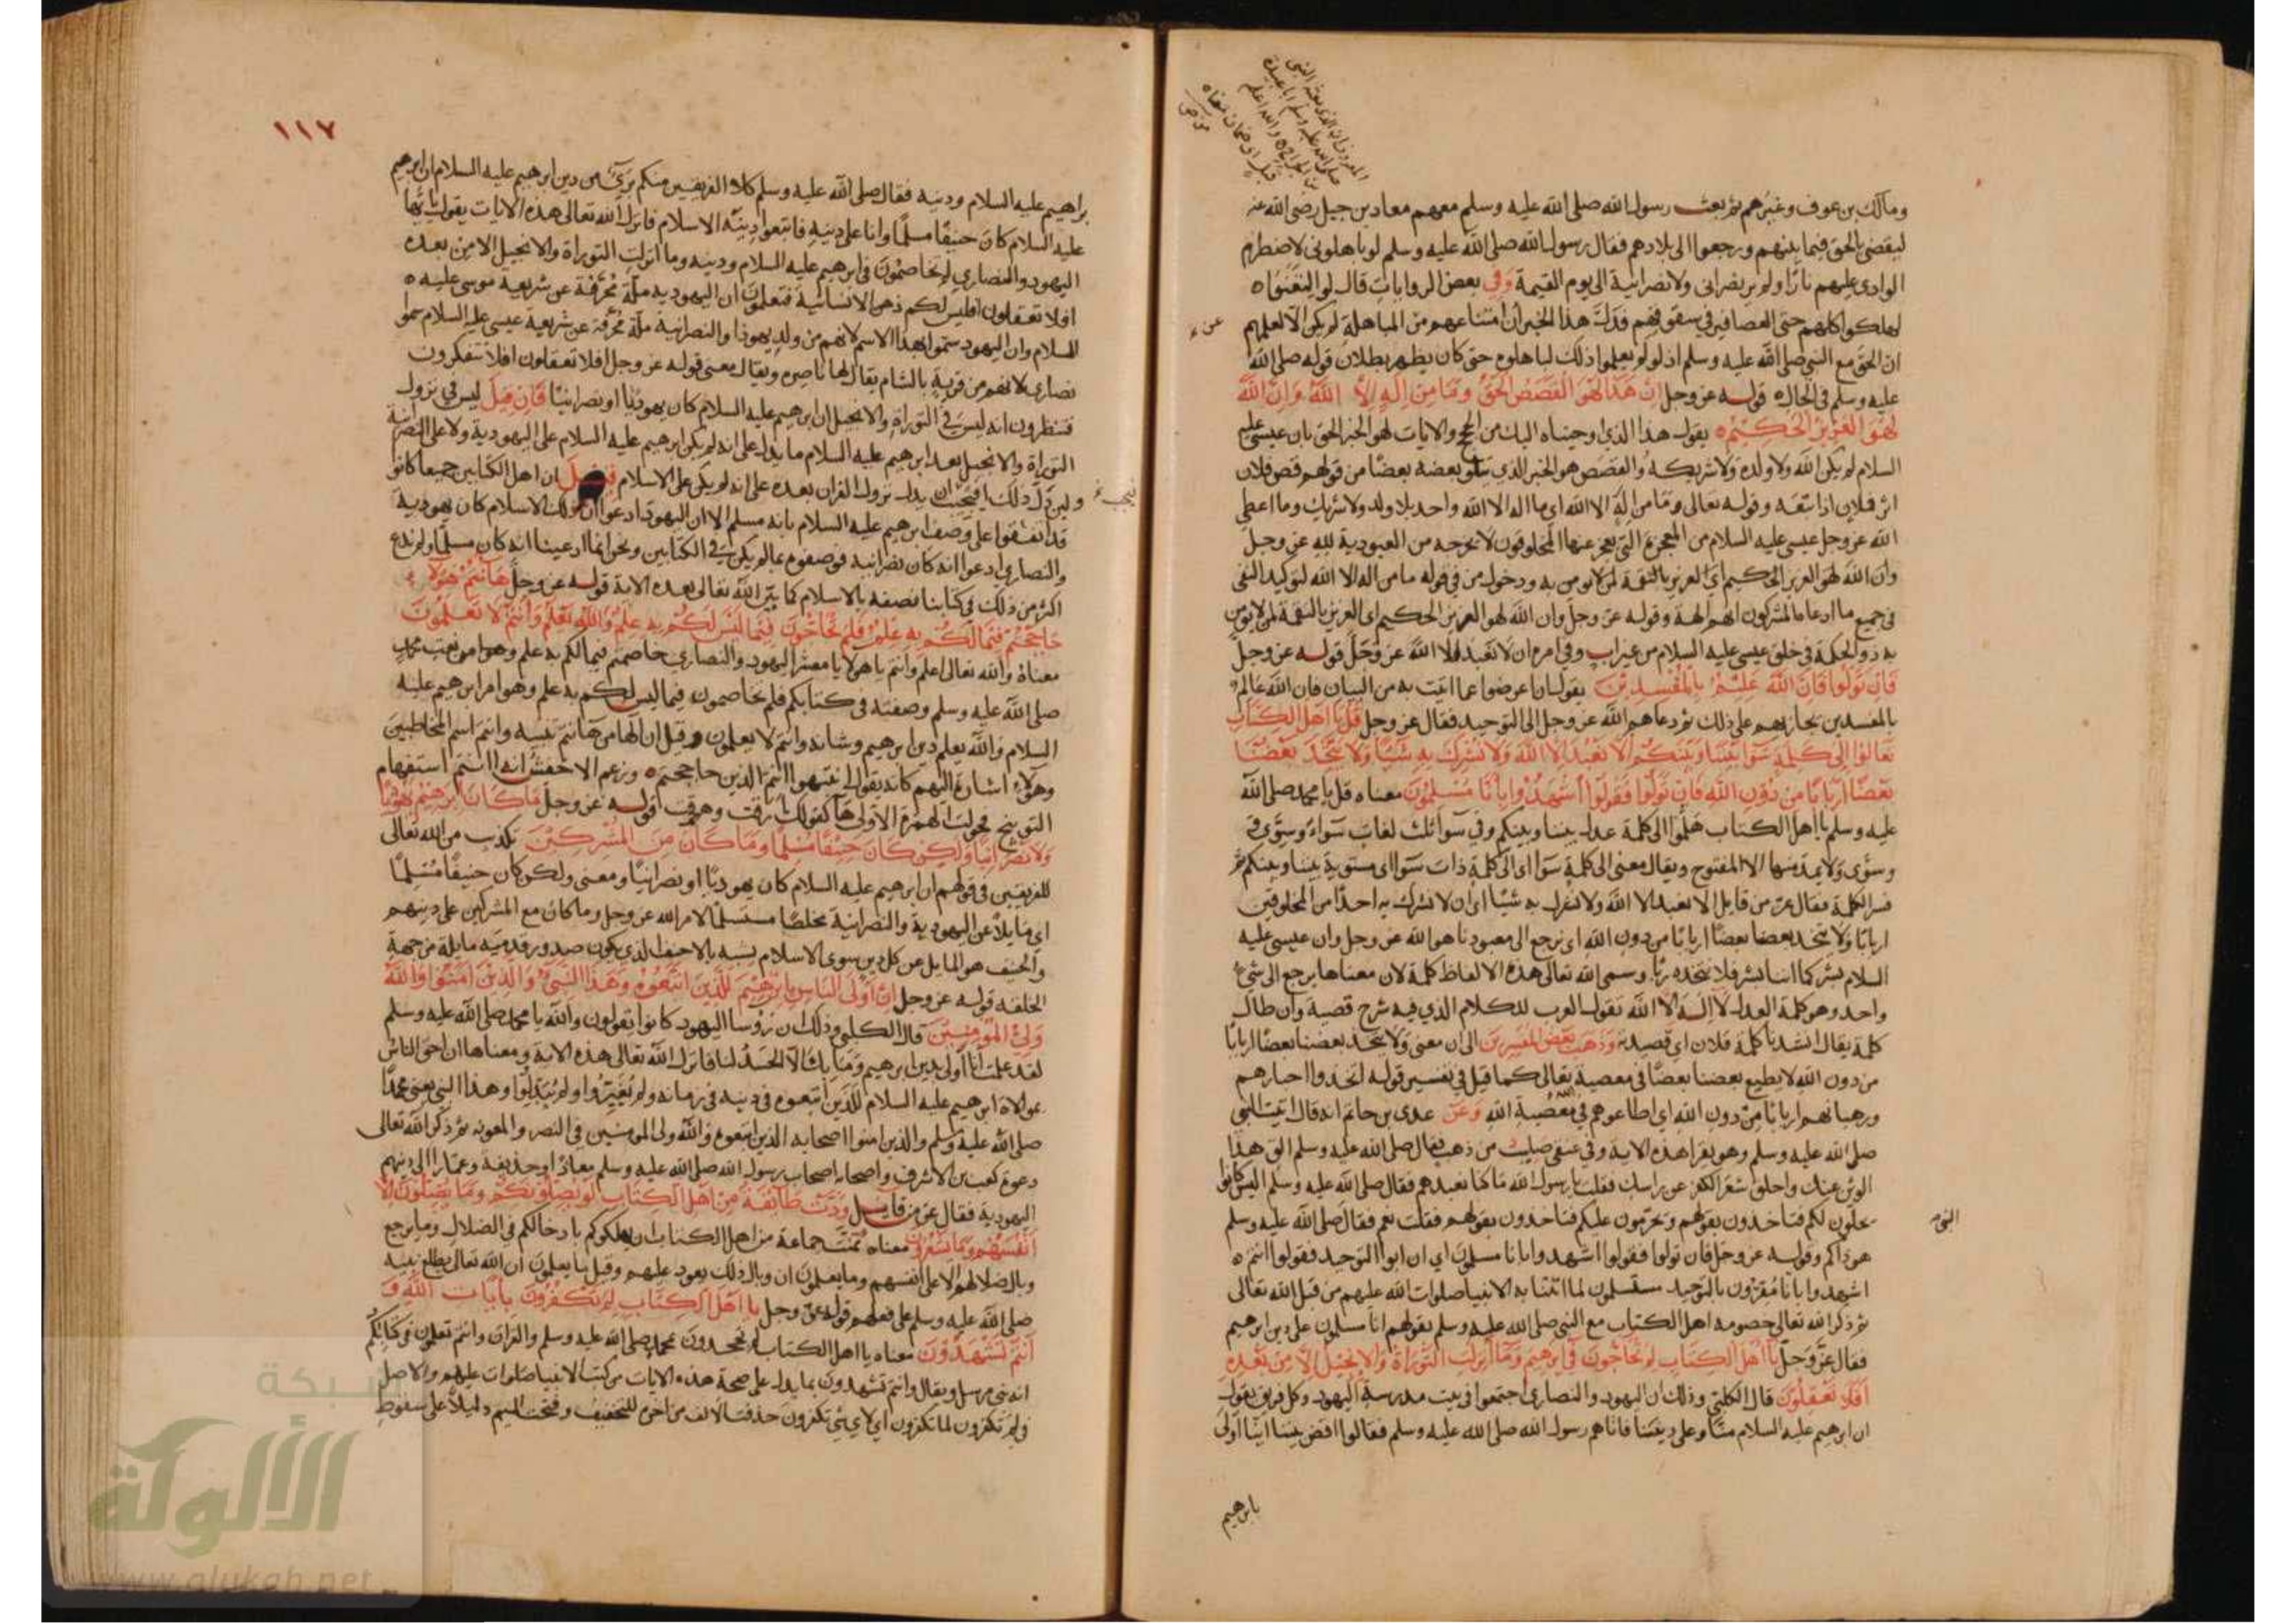 ومالك بن عوف وغيرهم ثم بعث رسول الله صلى الله عليه وسلم معهم معاذ بن جبل رضي الله عنه
ليقضي بالحق فيما بينهم ورجعوا الى بلادهم فقال رسول الله صلى الله عليه وسلم لو باهلوني لاضطرم
الوادي عليهم نارا ولم ير نصراني ولا نصرانية الى يوم القيمة وفي بعض الروايات قال لو التعنوا
لهلكوا كلهم حتى العصافير في سقوفهم فدلت هذا الخبر ان امتناعهم من المباهلة لم يكن الا لعلمهم
ان الحق مع النبي صلى الله عليه وسلم اذ لو لم يعلموا ذلك لباهلوه حتى كان يظهر بطلان قوله صلى الله
عليه وسلم في الحال قوله عز وجل ان هذا لهو القصص الحق وما من اله الا الله وان الله
لهو العزيز الحكيم يقول هذا الذي اوحيناه اليك من الحجج والايات لهو الخبر الحق بان عيسى عليه
السلام لم يكن الله ولا ولده ولا شريكه والقصص هو الخبر الذي يتلو بعضه بعضا من قولهم قص فلان
اثر فلان اذا اتبعه وقوله تعالى وما من اله الا الله اي ما اله الا الله واحد بلا ولد ولا شريك وما اعطى
الله عز وجل عيسى عليه السلام من المعجزة التي يعجز عنها المخلوقون لا يخرجه من العبودية لله عز وجل
وان الله لهو العزيز الحكيم اي العزيز بالنقمة لمن لا يومن به ودخول من في قوله ما من اله الا الله لتوكيد النفي
في جميع ما ادعا ما المشركون انهم الهة وقوله عز وجل وان الله لهو العزيز الحكيم اي العزيز بالنقمة لمن لا يومن
به ذو الحكمة في خلق عيسى عليه السلام من غير اب وفي امره ان لا تعبدوا الا الله عز وجل قوله عز وجل
فان تولوا فان الله عليم بالمفسدين يقول ان اعرضوا عما اتيت به من البيان فان الله عالم
بالمفسدين يجازيهم على ذلك ثم دعاهم الله عز وجل الى التوحيد فقال عز وجل قل يا اهل الكتاب
تعالوا الى كلمة سوا بيننا وبينكم الا نعبد الا الله ولا نشرك به شيئا ولا يتخذ بعضنا
بعضا اربابا من دون الله فان تولوا فقولوا اشهدوا بانا مسلمون معناه قل يا محمد صلى الله
عليه وسلم يا اهل الكتاب هلموا الى كلمة عدل بيننا وبينكم وفي سوا ثلث لغات سواء وسوى
وسوى ولا يمد منها الا المفتوح ويقال معنى الى كلمة سوا اي الى كلمة ذات سوا اي مستوية بيننا وبينكم ثم
فسر الكلمة فقال عز من قايل الا نعبد الا الله ولا نشرك به شيئا اي ان لا نشرك به احدا من المخلوقين
اربابا ولا يتخذ بعضنا بعضا اربابا من دون الله اي نرجع الى معبودنا هو الله عز وجل وان عيسى عليه
السلام بشر كما انا بشر فلا نتخذه ربا وسمى الله تعالى هذه الالفاظ كلمة لان معناها يرجع الى شيء
واحد وهو كلمة العدل لا اله الا الله تقول العرب للكلام الذي فيه شرح قصة وان طال
كلمة يقال انشدنا كلمة فلان اي قصيدته وذهب بعض المفسرين الى ان معنى ولا يتخذ بعضنا بعضا اربابا
من دون الله لا يطيع بعضنا بعضا في معصية تعالى كما قيل في تفسير قوله اتخذوا احبارهم
ورهبانهم اربابا من دون الله اي اطاعوهم في معصية الله وعن عدى بن حاتم انه قال اتيت النبي
صلى الله عليه وسلم وهو يقرا هذه الاية وفي عنقي صليب من ذهب فقال صلى الله عليه وسلم الق هذا
الوثن عنك واحلق شعر الكفر عن راسك فقلت يا رسول الله ما كنا نعبدهم فقال صلى الله عليه وسلم اليس كانوا
يحلون لكم فتاخذون بقولهم ويحرمون عليكم فتاخذون بقولهم فقلت نعم فقال صلى الله عليه وسلم
هو ذاكم وقوله عز وجل فان تولوا فقولوا اشهدوا بانا مسلمون اي ان ابوا التوحيد فقولوا انتم
اشهدوا بانا مقرون بالتوحيد مستسلمون لما اتتنا به الانبيا صلوات الله عليهم من قبل الله تعالى
ثم ذكر الله تعالى خصومة اهل الكتاب مع النبي صلى الله عليه وسلم بقولهم انا مسلمون على دين ابرهيم
فقال عز وجل يا اهل الكتاب لم تحاجون في ابرهيم وما انزلت التوراة والانجيل الا من بعده
افلا تعقلون قال الكلبي وذلك ان اليهود والنصارى اجتمعوا في بيت مدرسة اليهود وكل فريق يقول
ان ابرهيم عليه السلام منا وعلى ديننا فاتاهم رسول الله صلى الله عليه وسلم فقالوا اقض بيننا اينا اولى
بابرهيم
١١٧
براهيم عليه السلام ودينه فقال صلى الله عليه وسلم كلا الفريقين منكم بريء من دين ابرهيم عليه السلام ان ابرهيم
عليه السلام كان حنيفا مسلما وانا على دينه فاتبعوا دينه الاسلام فانزل الله تعالى هذه الايات يقول يا ايها
اليهود والنصارى لم تخاصمون في ابرهيم عليه السلام ودينه وما انزلت التوراة والانجيل الا من بعده
افلا تعقلون افليس لكم ذهن الانسانية فتعلمون ان اليهودية ملة محرفة عن شريعة موسى عليه
السلام وان اليهود سموا بهذا الاسم لانهم من ولد يهوذا والنصرانية ملة محرفة عن شريعة عيسى عليه السلام سموا
نصارى لانهم من قرية بالشام يقال لها ناصره ويقال معنى قوله عز وجل افلا تعقلون افلا تتفكرون
فتنظرون انه ليس في التوراة والانجيل ان ابرهيم عليه السلام كان يهوديا او نصرانيا فان قيل ليس في نزول
التوراة والانجيل بعد ابرهيم عليه السلام ما يدل على انه لم يكن ابرهيم عليه السلام على اليهودية ولا على النصرانية
ولين دل ذلك ان يدل نزول القران بعده على انه لم يكن على الاسلام قيل ان اهل الكتابين جميعا كانوا
قد اتفقوا على وصف ابرهيم عليه السلام بانه مسلم الا ان اليهود ادعوا ان ذلك الاسلام كان يهودية
والنصارى ادعوا انه كان نصرانية فوصفوه بما لم يكن في الكتابين ونحن انما ادعينا انه كان مسلما ولم ندع
اكثر من ذلك في كتابنا نصفه بالاسلام كما بين الله تعالى بعد هذه الاية قوله عز وجل ها انتم هولاء
حاججتم فيما لكم به علم فلم تحاجون فيما ليس لكم به علم والله يعلم وانتم لا تعلمون
معناه والله تعالى اعلم وانتم يا هولا يا معشر اليهود والنصارى خاصمتم فيما لكم به علم وهو امر نعت محمد
صلى الله عليه وسلم وصفته في كتابكم فلم تخاصمون فيما ليس لكم به علم وهو امر ابرهيم عليه
السلام والله يعلم دين ابرهيم وشانه وانتم لا تعلمون وقيل ان الها من ها انتم تنبيه وانتم اسم المخاطبين
وهولاء اشارة اليهم كانه يقول انتبهوا انتم الذين حاججتم وزعم الاخفش انه اانتم استفهام
التوبيخ فحولت الهمزة الاولى ها كقولك ارقت وهرقت قوله عز وجل ما كان ابرهيم يهوديا
ولا نصرانيا ولكن كان حنيفا مسلما وما كان من المشركين تكذيب من الله تعالى
للفريقين في قولهم ان ابرهيم عليه السلام كان يهوديا او نصرانيا ومعنى ولكن كان حنيفا مسلما
اي مايلا عن اليهودية والنصرانية مخلصا مستسلما لامر الله عز وجل وما كان مع المشركين على دينهم
والحنيف هو المايل عن كل دين سوى الاسلام يشبه بالاحنف الذي يكون صدور قدميه مايلة من جهة
الخلقه قوله عز وجل ان اولى الناس بابرهيم للذين اتبعوه وهذا النبي والذين امنوا والله
ولي المومنين قال الكلبي وذلك ان رؤسا اليهود كانوا يقولون والله يا محمد صلى الله عليه وسلم
لقد علمت انا اولى بدين ابرهيم وما بك الا الحسد لنا فانزل الله تعالى هذه الاية ومعناها ان احق الناس
بموالاة ابرهيم عليه السلام للذين اتبعوه في دينه في زمانه ولم يغيروا ولم يبدلوا وهذا النبي يعني محمدا
صلى الله عليه وسلم والذين امنوا اصحابه الذين اتبعوه والله ولي المومنين في النصر والمعونه ثم ذكر الله تعالى
دعوة كعب بن الاشرف واصحابه اصحاب رسول الله صلى الله عليه وسلم معاذ وحذيفة وعمارا الى دينهم
اليهودية فقال عز من قايل ودت طائفة من اهل الكتاب لو يضلونكم وما يضلون الا
انفسهم وما يشعرون معناه تمنت جماعة من اهل الكتاب ان يهلكوكم بادخالكم في الضلال وما يرجع
وبال ضلالهم الا على انفسهم وما يعلمون ان وبال ذلك يعود عليهم وقيل ما يعلمون ان الله تعالى يطلع نبيه
صلى الله عليه وسلم على فعلهم قوله عز وجل يا اهل الكتاب لم تكفرون بايات الله و
انتم تشهدون معناه يا اهل الكتاب لم تجحدون محمد صلى الله عليه وسلم والقران وانتم تعلمون في كتابكم
انه نبي مرسل ويقال وانتم تشهدون بما يدل على صحة هذه الايات من كتب الانبيا صلوات عليهم والاصل
في لم تكفرون لما تكفرون اي لاي شي تكفرون حذفت الالف من اخره للتخفيف وفتحت الميم دليلا على سقوط
شبكة
الألوكة
www.alukah.net